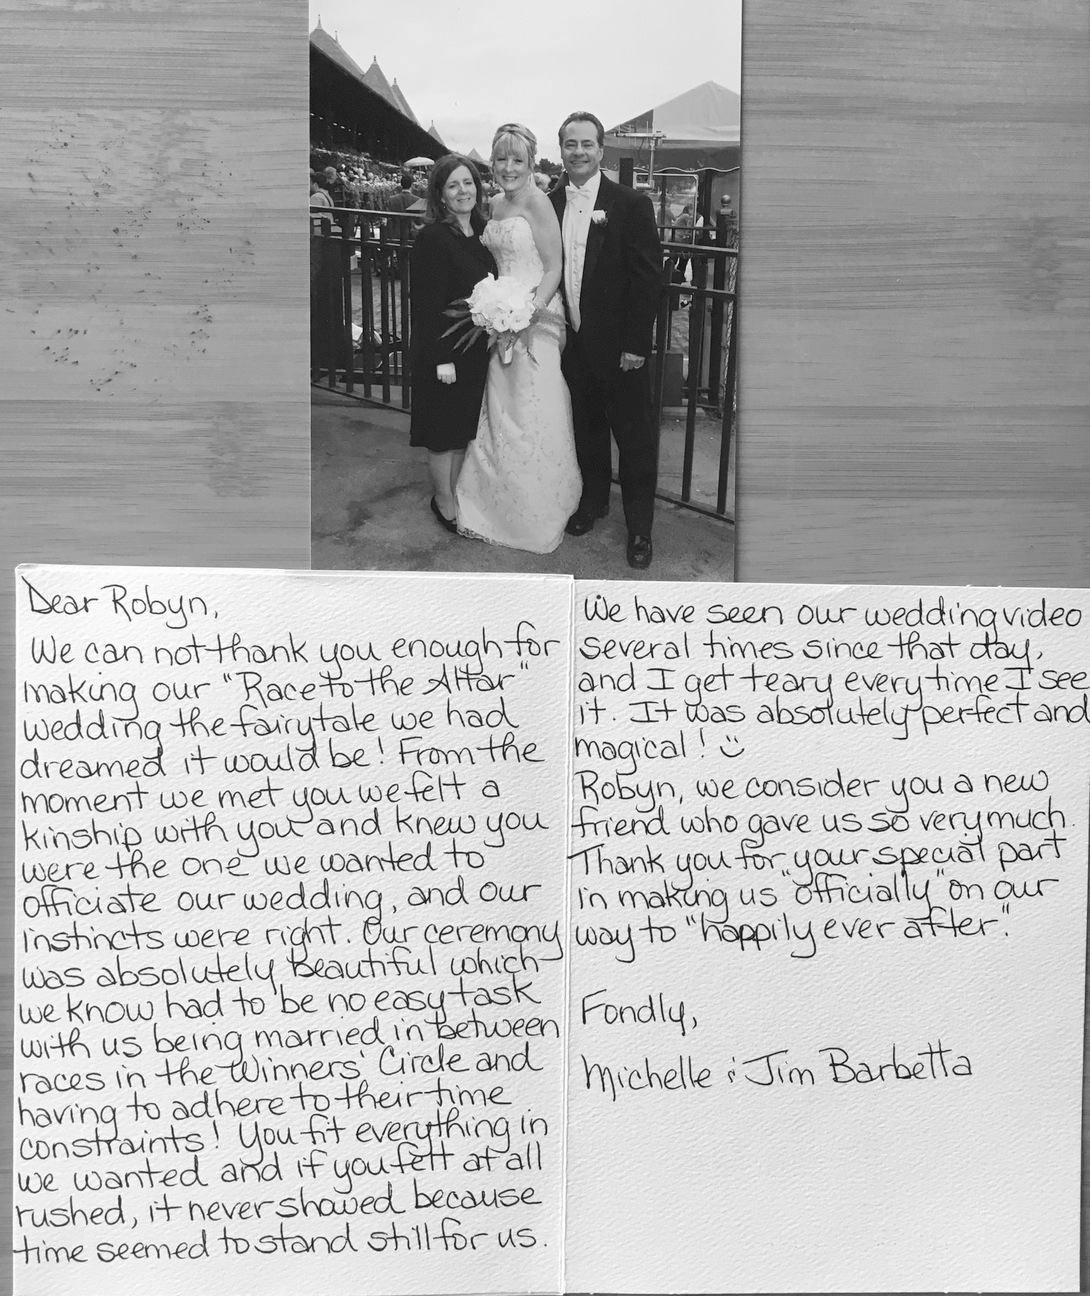 Dear Robyn,
We can not thank you enough for
making our "Race to the Altar"
wedding the fairytale we had
dreamed it would be! From the
moment we met you we felt a
kinship with you and knew you
were the one we wanted to
officiate our wedding, and our
instincts were right. Our ceremony
was absolutely beautiful which
we know had to be no easy task
with us being married in between
races in the Winners' Circle and
having to adhere to their time
constraints! You fit everything in
we wanted and if you felt at all
rushed, it never showed because
time seemed to stand still for us.
We have seen our wedding video
several times since that day,
and I get teary everytime I see
it. It was absolutely perfect and
magical! :)
Robyn, we consider you a new
friend who gave us so very much.
Thank you for your special part
in making us "officially" on our
way to "happily ever after".
Fondly,
Michelle & Jim Barbetta